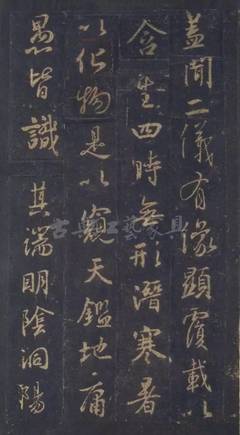 盖聞二儀有像顯覆載以
含生四時無形潛寒暑
以化物是以窺天鑑地庸
愚皆識其端明陰洞陽
古典工藝家具